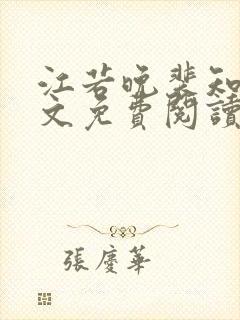 江若晚裴知
文免費閱讀
張慶華